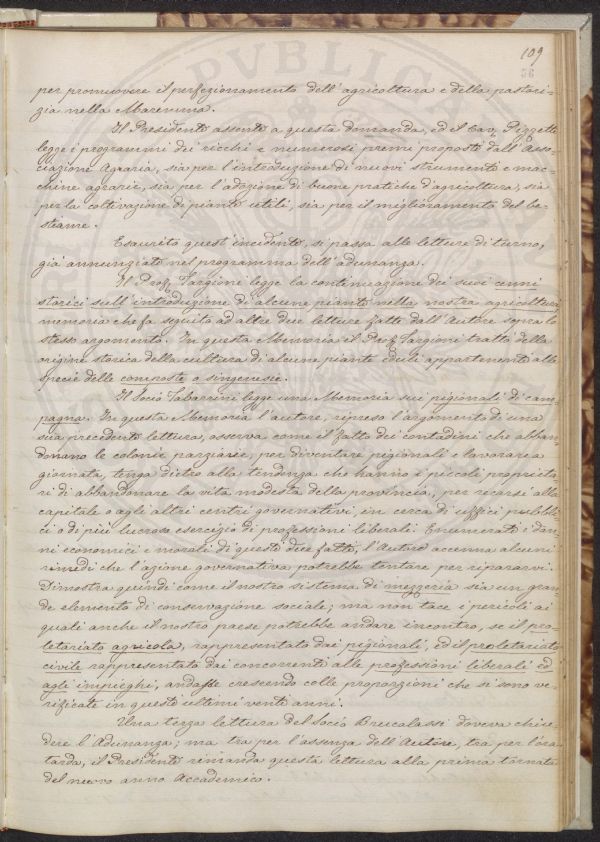 109
56
per promuovere il perfezionamento dell'agricoltura e della pastori-
zia nella Maremma.
Il Presidente assente a questa domanda, ed il Cav. Pizzetti
legge i programmi dei ricchi e numerosi premi proposti dall'Asso-
ciazione Agraria, sia per l'introduzione di nuovi strumenti e mac-
chine agrarie, sia per l'adozione di buone pratiche d'agricoltura, sia
per la coltivazione di piante utili, sia per il miglioramento del be-
stiame.
Esaurito quest'incidente, si passa alle letture di turno,
già annunziate nel programma dell'adunanza.
Il Prof. Targioni legge la continuazione dei suoi cenni
storici sull'introduzione di alcune piante nella nostra agricoltura
memoria che fa seguito ad altre due letture fatte dall'Autore sopra lo
stesso argomento. In questa Memoria il Prof. Targioni tratta della
origine storica della cultura di alcune piante eduli appartenenti alla
specie delle composte o singenesie.
Il Socio Tabarrini legge una Memoria sui pigionali di cam-
pagna. In questa Memoria l'autore, ripreso l'argomento di una
sua precedente lettura, osserva come il fatto dei contadini che abban-
donano le colonie parziarie, per diventare pigionali e lavorare a
giornata, tenga dietro alla tendenza che hanno i piccoli proprieta-
ri di abbandonare la vita modesta della provincia, per recarsi alla
capitale o agli altri centri governativi, in cerca di uffici pubbli-
ci o di più lucroso esercizio di professioni liberali. Enumerati i dan-
ni economici e morali di questi due fatti, l'Autore accenna alcuni
rimedi che l'azione governativa potrebbe tentare per ripararvi.
Dimostra quindi come il nostro sistema di mezzeria sia un gran-
de elemento di conservazione sociale; ma non tace i pericoli ai
quali anche il nostro paese potrebbe andare incontro, se il pro-
letariato agricola, rappresentato dai pigionali, ed il proletariato
civile rappresentato dai concorrenti alle professioni liberali ed
agli impieghi, andasse crescendo colle proporzioni che si sono ve-
rificate in questi ultimi venti anni.
Una terza lettura del Socio Brucalassi doveva chiu-
dere l'Adunanza; ma tra per l'assenza dell'Autore, tra per l'ora
tarda, il Presidente rimanda questa lettura alla prima tornata
del nuovo anno Accademico.